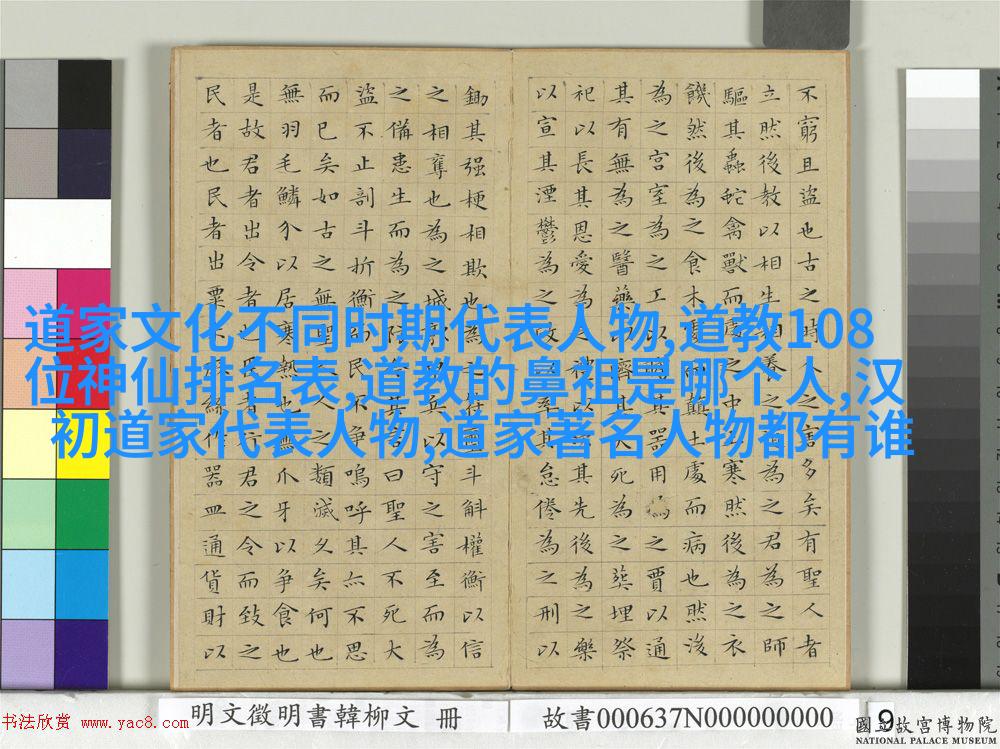 道家文化不同时期代表人物,道教108
位神仙排名表,道教的鼻祖是哪个人,汉
初道家代表人物,道家著名人物都有谁
不窮且盜也古之時人之害多矣有聖人者
立然後教以相生養之為之君為之師
驅其蟲蛇禽獸而處之中土寒然後為之衣
饑然後為之食木處而顛土處而病也然後
為之宮室為之工以其器用為之賈以通
其有無為之醫藥以濟其夭死為之葬埋祭
祀以長其恩愛為之以其先後為之樂
以宣其湮鬱為之政以率其怠倦為之刑以
鋤其强梗相欺也為之符璽斗斛權衡以信
之相奪也為之城郭甲兵以守之害至而為
之備患生而為之防其言曰聖人不死大
盜不止剖斗折衡而民不爭嗚呼其亦不思
而已矣如古之無聖人之類滅久矣何也
無羽毛鱗介以居寒熱也無爪牙以爭食也
是故君者出令者也臣者行君之令而致之
民者也民者出粟米麻絲作器皿通貨財以
明文徵明書韓柳文 冊
故書000637N000000000
9
國立故宮博物院
NATIONAL PALACE MUSEUM
书法欣赏 www.yac8.com